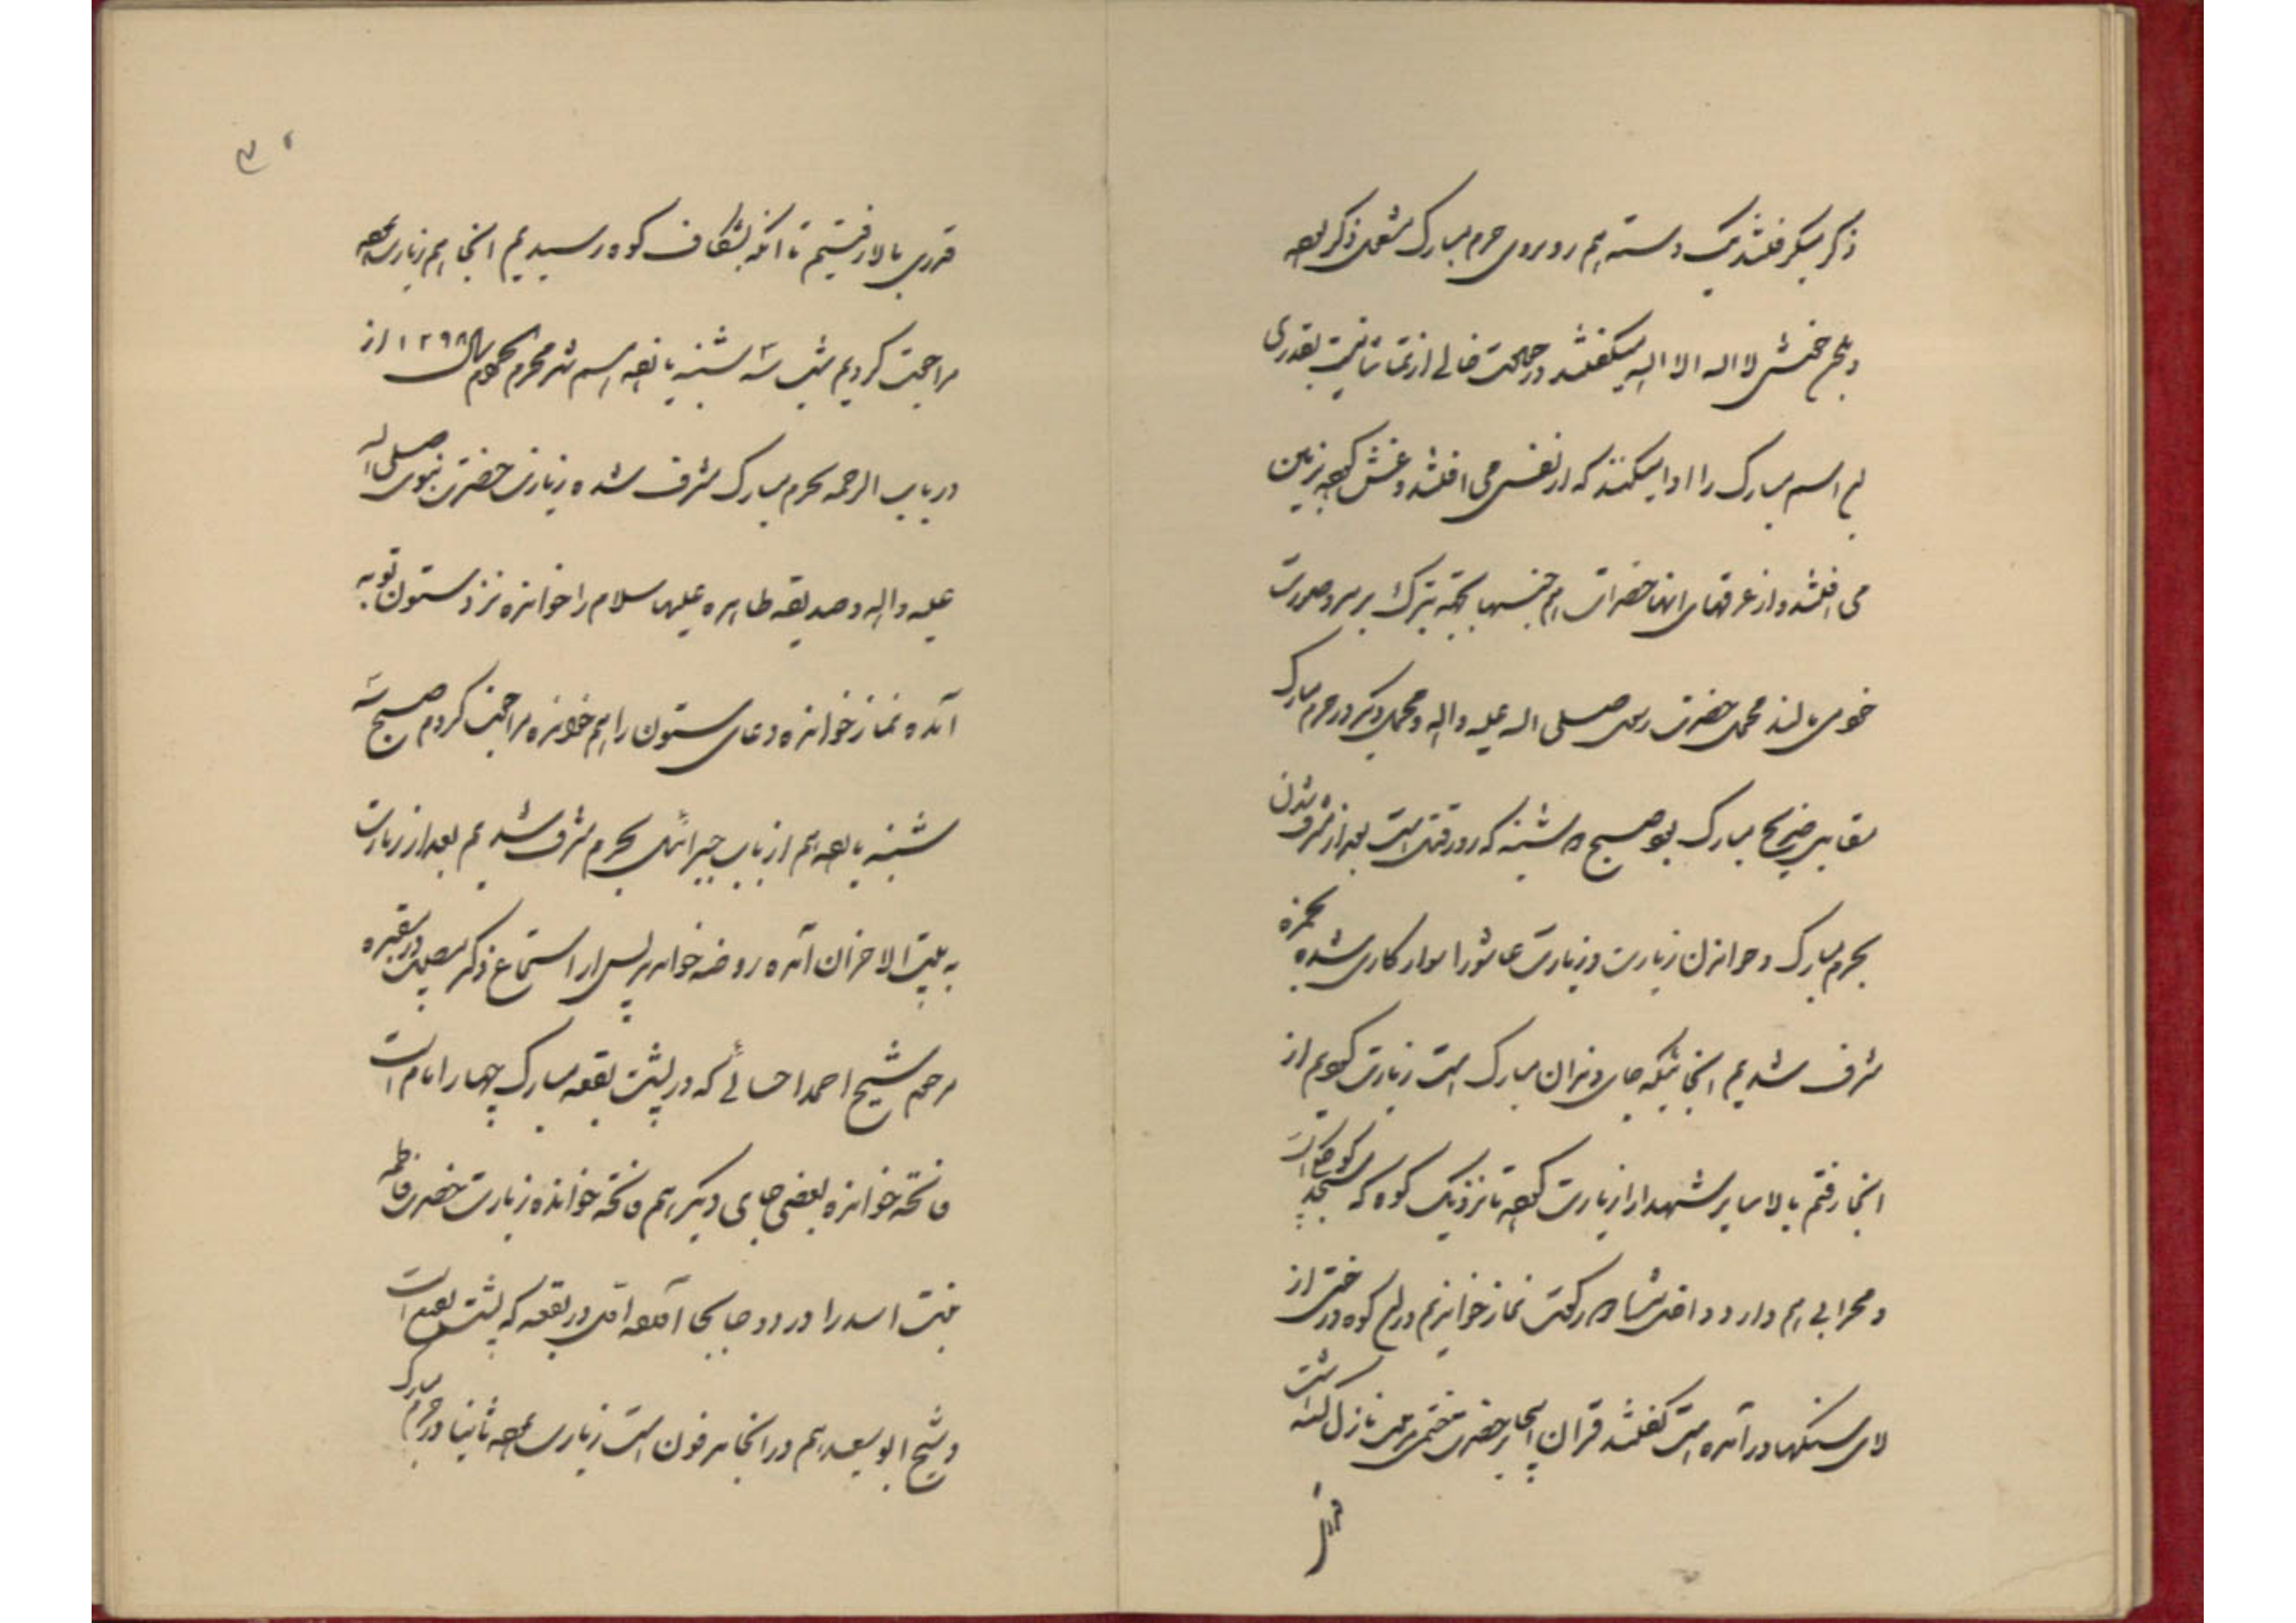 ذکر میگرفتند یک دسته هم روبروی حرم مبارک مشغول ذکر بوده
لا اله الا الله میگفتند در حالت خالی از تماشا نیست بقدری
اسم مبارک را ادا میکنند که از نفس می افتند و غش کرده بزمین
می افتند و از عرقهای انها حضرات هم جنسها بجهة تبرک بر سر و صورت
خود می مالند محمل حضرت رسول صلی الله علیه و اله و محمل دیگر در حرم مبارک
مقابل ضریح مبارک بود صبح شنبه که روز قتل است بعد از مشرف شدن
بحرم مبارک و خواندن زیارت و زیارت عاشورا سوار کاری شده بحمزه
مشرف شدیم انجا نیکه جای دندان مبارک است زیارت کردیم از
انجا رفتم بالا سایر شهدا را زیارت کرده تا نزدیک کوه که مسجد کوچکی است
و محرابی هم دارد داخل شده رکعت نماز خواندم در کوه درختی از
لای سنگها در آمده است گفتند قران اینجا بر حضرت ختمی مرتبت نازل گشته است
قدری
۳۰
قدری بالا رفتیم تا انکه بشکاف کوه رسیدیم انجا هم زیارت کرده
مراجعت کردیم شب سه شنبه یازدهم شهر محرم الحرام سال ۱۲۹۸ از
در باب الرحمه بحرم مبارک مشرف شده زیارت حضرت نبوی صلی الله
علیه و اله و صدیقه طاهره علیها سلام را خوانده نزد ستون توبه
آمده نماز خوانده دعای ستون را هم خوانده مراجعت کردم صبح سه
شنبه یازدهم از باب جبرائیل بحرم مشرف شدیم بعد از زیارت
به بیت الاحزان آمده روضه خواندند پس از استماع ذکر مصیبت در مقبره
مرحوم شیخ احمد احسائی که در پشت بقعه مبارک چهار امام است
فاتحه خوانده بعضی جای دیگر هم فاتحه خوانده زیارت حضرت فاطمه
بنت اسد را در دو جا بجا آورده اول در بقعه که پشت بقیع است
و شیخ ابو سعید هم در انجا مدفون است زیارت کرده ثانیا در حرم مبارک